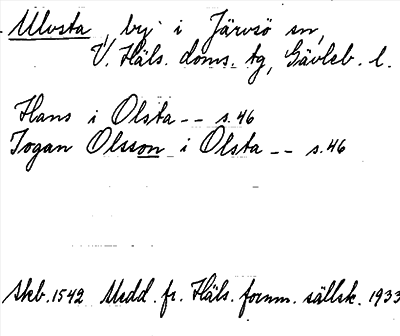 Ulvsta, by i Järvsö sn,
V. Häls. doms. tg, Gävleb. l.
Hans i Olsta -- s. 46
Jogan Olsson i Olsta -- s. 46
Skb. 1542 Medd. fr. Häls. fornm. sällsk. 1933